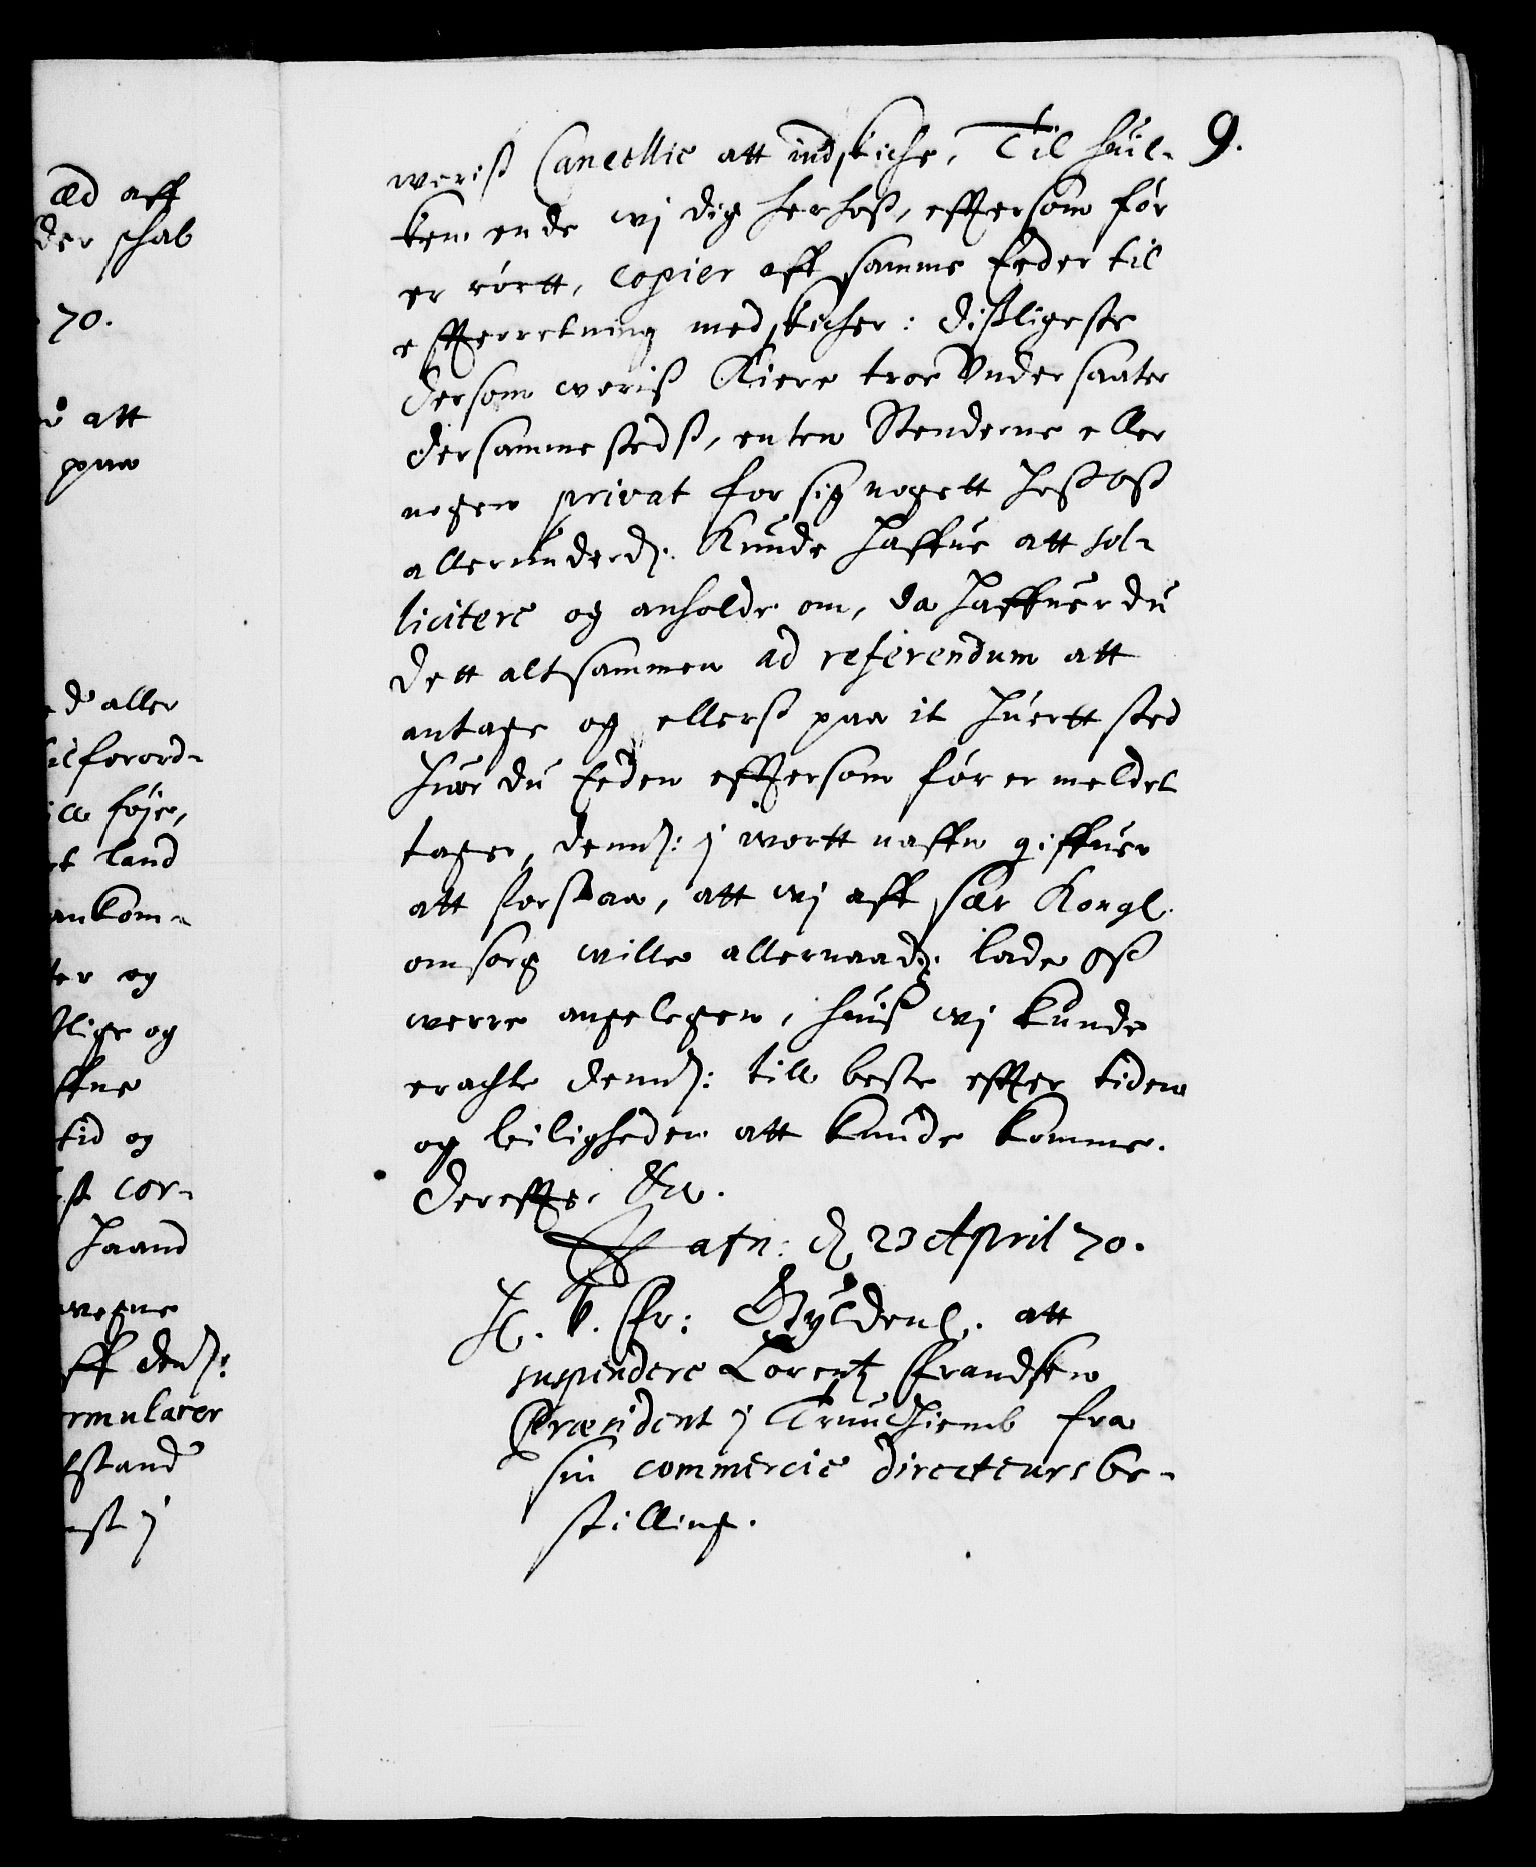 æd aff
der skab
70.
att
paa
d aller
il forord-
ill føje,
et land
ankom-
ter og
llige og
ffue
tid og
st cor-
Haand
wegne
ff denß:
rmularer
stand
st j
9.
woriß Cancellie att indskiche, Til huil-
ken ende wj dig herhoß, effersom før
er rørtt, copier aff samme Eeder til
efferretning medskicher: dißligeste
dersom woriß Kiere troe Vndersaater
dersammestedß, enten Stenderne eller
nogen privat for sig nogett hoß oß
allerunderd: Kunde haffue att sol-
licitere og anholde om, da haffuer du
dett altsammen ad referendum att
antage og ellerß paa it huertt sted
huor du Eeden effersom før er meldet
tager, dennß: j wortt naffn giffuer
att forstaa, att wj aff sær Kongl.
omsorg wille allernaadg: lade oß
werre angelegen, huiß wj kunde
erachte dennß: till beste effter tiden
og leiligheden att kunde komme.
Derefter &c.
Hafn: d. 23 April 70.
H. V. Fr: Gyldenl. att
suspendere Lorentz Frandsen
Præsident j Trundhiemb fra
sin commercie directeurs be-
stilling.